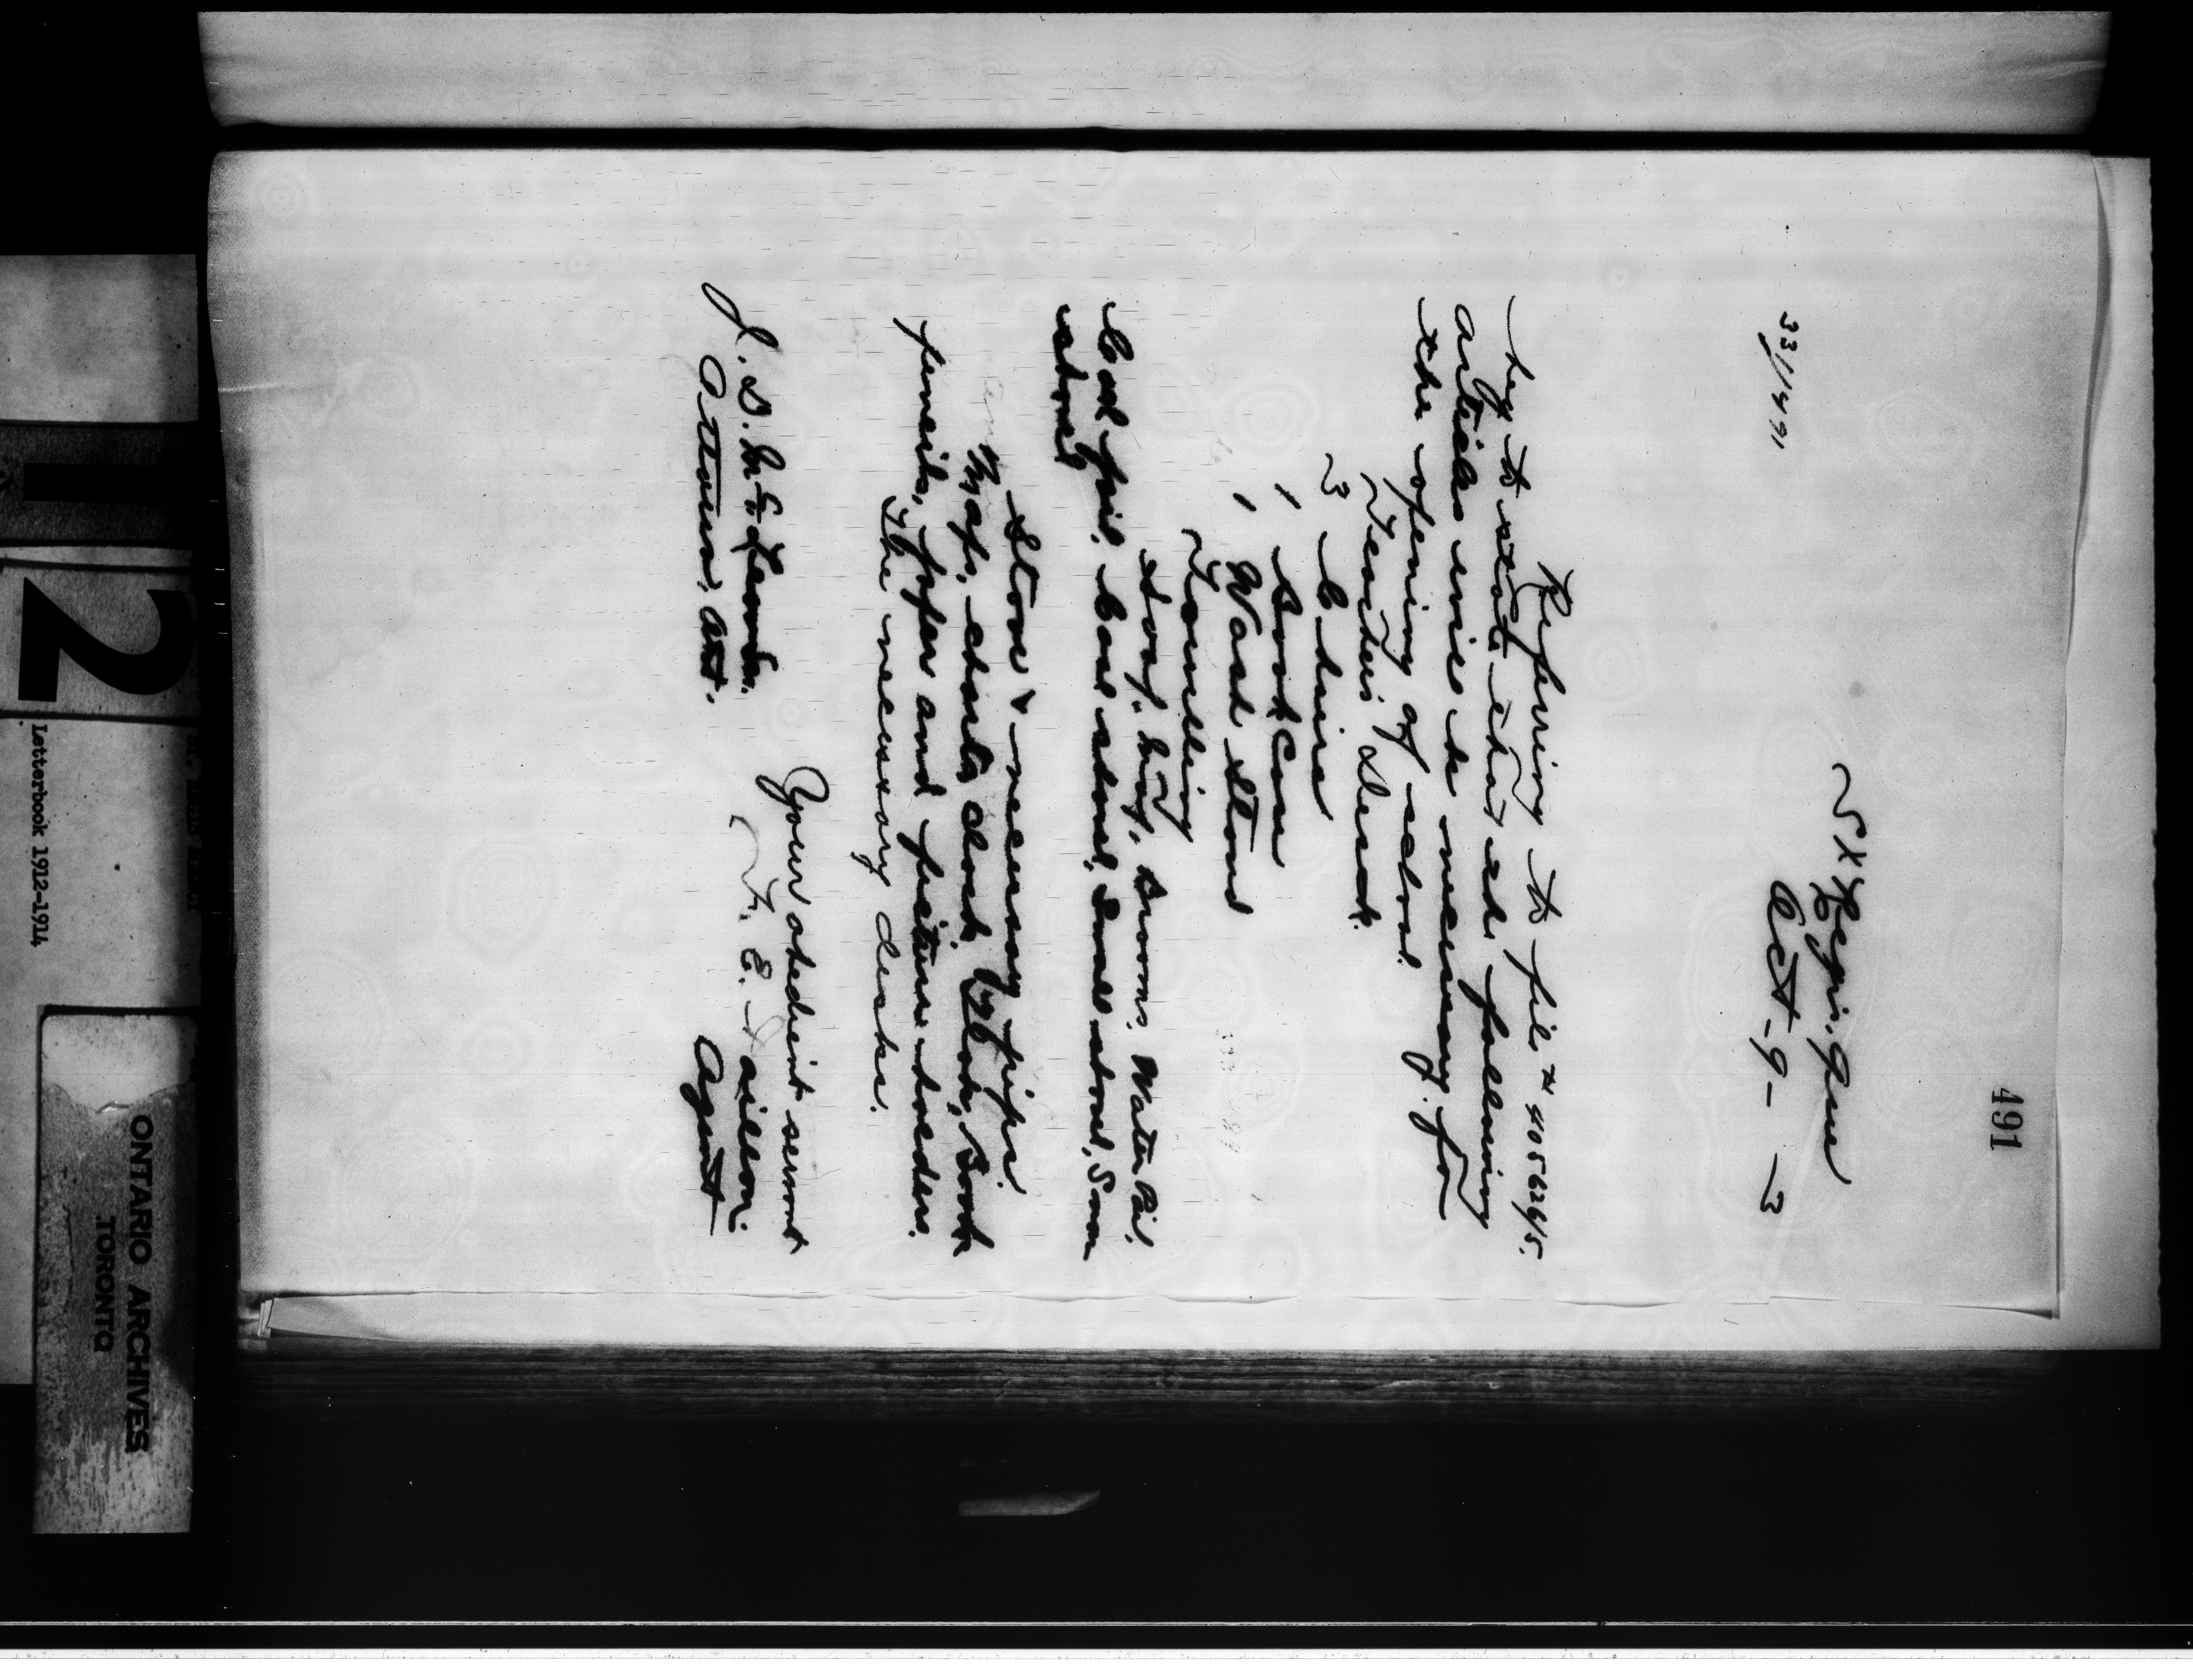 491
St Regis, Que
Oct - 9 - 13
33/1491
Referring to file # 405626/5.
beg to state that the following
articles will be necessary for
the opening of school.
Teachers Desk.
3 Chairs
1 Book Case
1 Wash Stand
Towelling
Soap, Mop, Brooms, Water Pail,
Coal pail, Coal shovel, Small shovel, Snow
shovel
Stove & necessary pipe.
Maps, charts clock, Globe, Book
pencils, paper and picture holders.
The necessary desks.
Your obedient servant
F. E. Taillon.
Agent
J. D. McLean.
Ottawa, Ont.
12
Letterbook 1912-1914
ONTARIO ARCHIVES
TORONTO